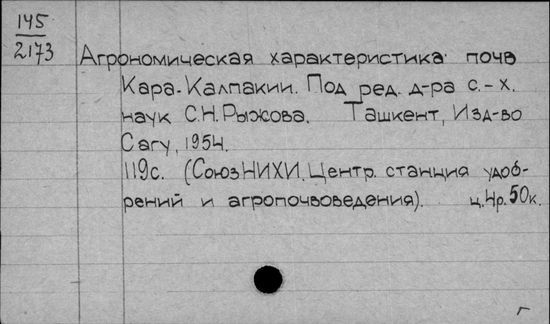 145
2173
Агрономическая характеристика почв
Кара-Калпакии. Под ред. д-ра с.-х.
наук С.Н.Рыжова. Ташкент, Изд-во
Сагу, 1954.
119с. (СоюзНИХИ. Центр. станция удоб-
рений и агропочвоведения). ц.4р.50к.
г